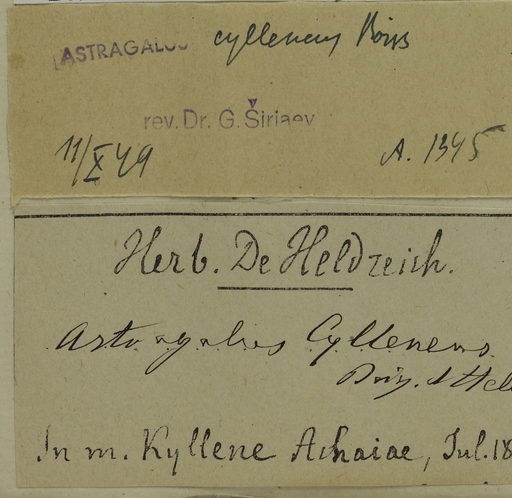 ASTRAGALUS cylleneus Boiss
rev. Dr. G. Širiaev
11/X 49 A. 1345
Herb. De Heldreich.
Astragalus Cylleneus
Boiss. & Hel
In m. Kyllene Achaiae, Jul. 18